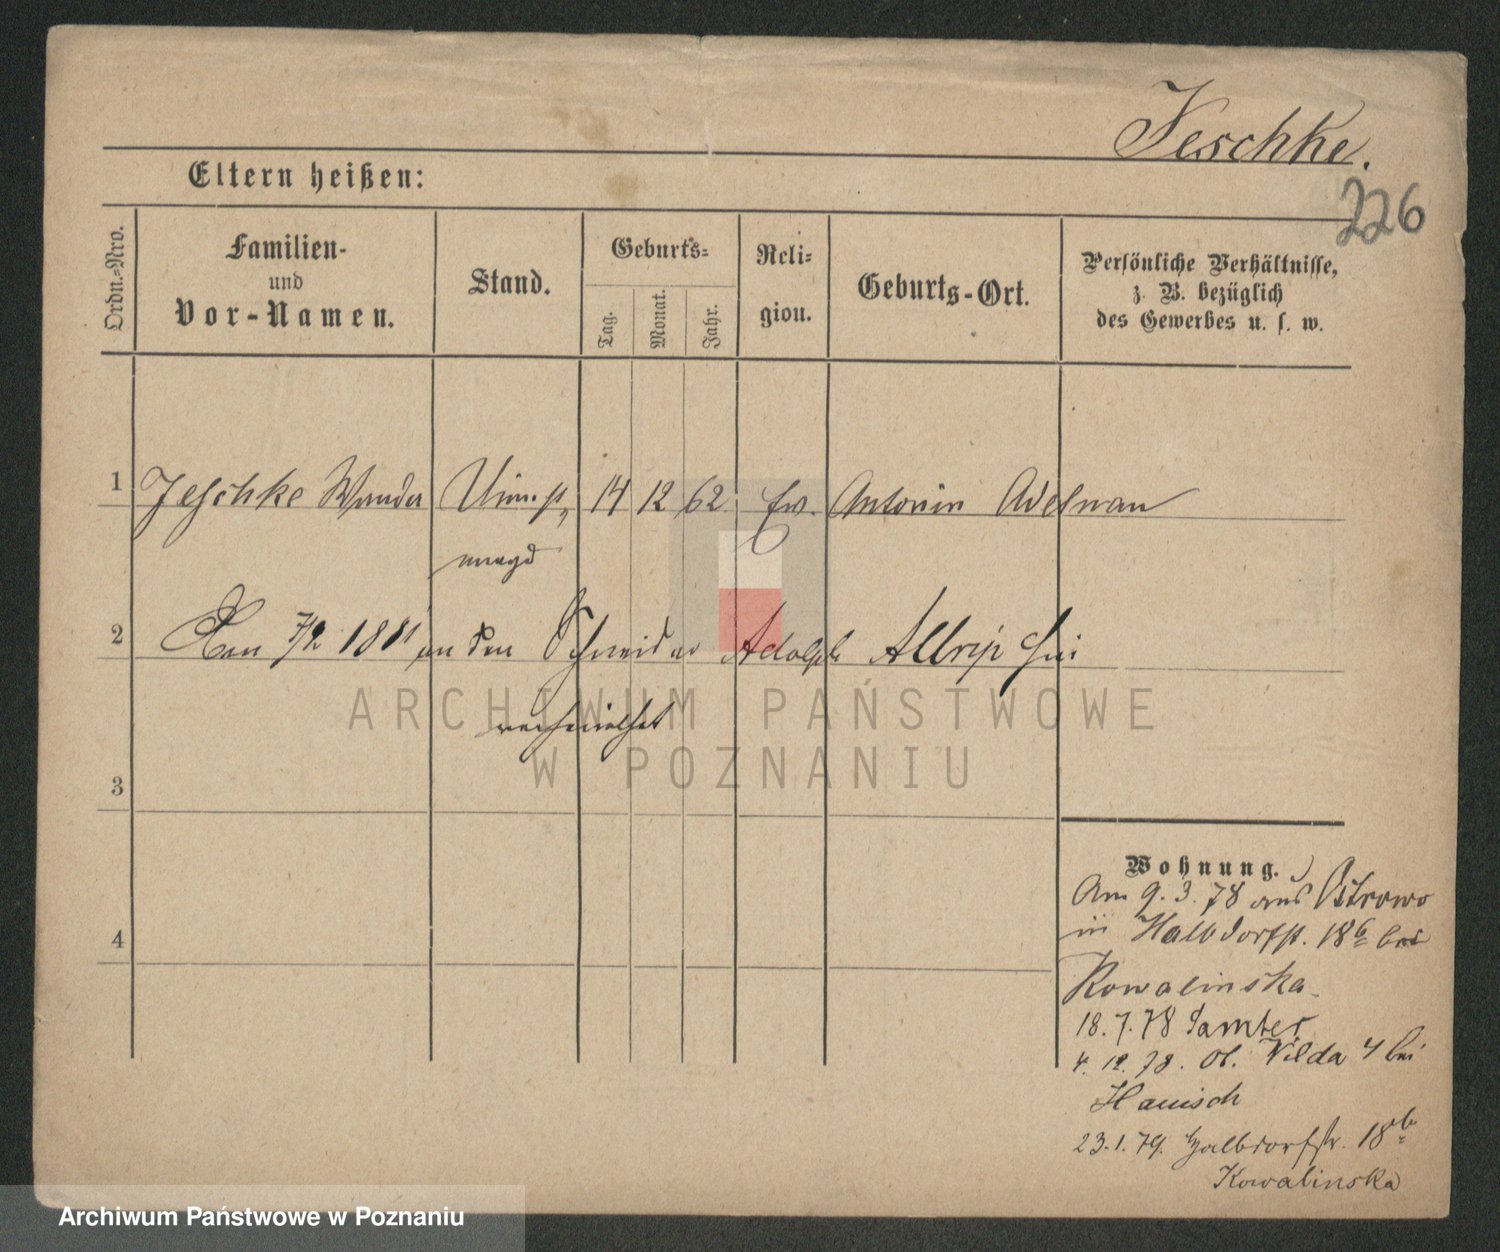 Jeschke.
226
Eltern heißen:
Ordn.-Nro.
Familien-
und
Vor-Namen.
Stand.
Geburts-
Tag.
Monat.
Jahr.
Reli-
gion.
Geburts-Ort.
Persönliche Verhältnisse,
z. B. bezüglich
des Gewerbes u. s. w.
1 Jeschke Wanda 14 12 62 Ev. Antonin Adelnau
magd
2 Den 7/2 1881 an den Schneider Adolph hier
verheirathet
3
4
Wohnung.
Am 9. 3. 78 aus Ostrowo
in Halbdorfst. 18b bei
Kowalinska
18. 7. 78 Samter
4. 12. 78. Ob. Wilda 4 bei
Hanisch
23. 1. 79. Halbdorfstr. 18b
Kowalinska
ARCHIWUM PAŃSTWOWE
W POZNANIU
Archiwum Państwowe w Poznaniu